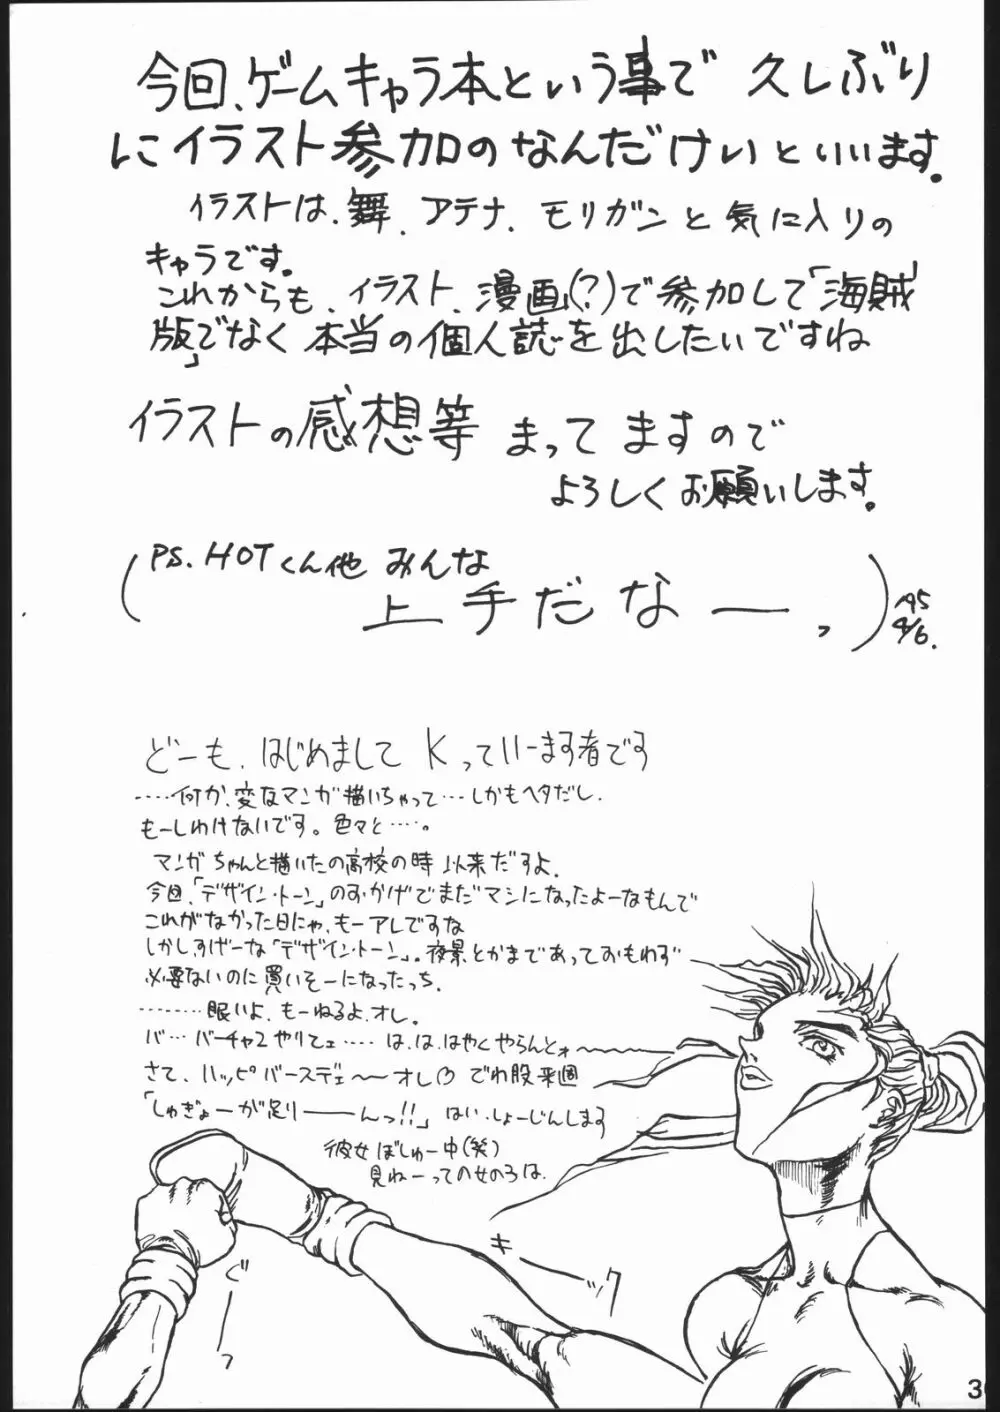 今回、ゲームキャラ本という事で 久しぶり
にイラスト参加のなんだけいといいます。
イラストは、舞、アテナ、モリガンと気に入りの
キャラです。
これからも、イラスト、漫画(?)で参加して「海賊
版」でなく本当の個人誌を出したいですね
イラストの感想等 まってますので
よろしくお願いします。
(PS. HOTくん他 みんな
上手だなーっ)
'95
4/6.
どーも、はじめまして Kっていーます者です
……何か、変なマンガ描いちゃって…しかもヘタだし、
もーしわけないです。色々と……。
マンガちゃんと描いたの高校の時以来だすよ、
今回、「デザイン・トーン」のおかげでまだマシになったよーなもんで
これがなかった日にゃ、もーアレですな
しかしすげーな「デザイン・トーン」。夜景とかまであっておもわず
必要ないのに買いそーになったっち、
………眠いよ、もーねるよ、オレ。
バ… バーチャ2やりてェ…… は、は、はやくやらんとォ〜
さて、ハッピバースデェ〜オレ♡ でわ股来週
「しゅぎょーが足りーーんっ!!」はい、しょーじんします
彼女ぼしゅー中(笑)
見ねーっての女のろは、
キ
ック
ぐーっ
3